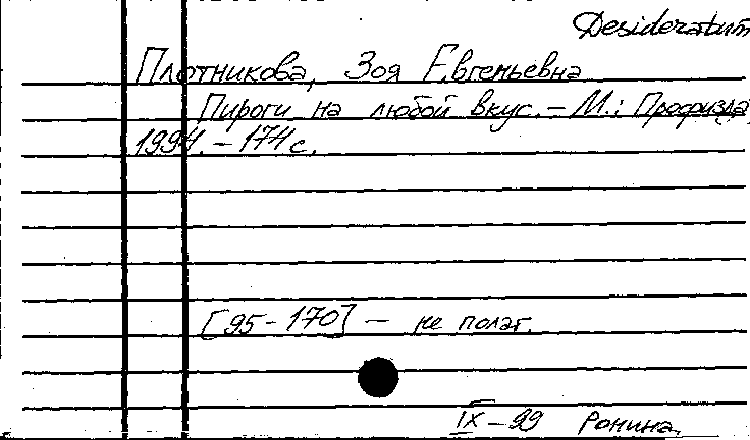 Desideratum
Плотникова, Зоя Евгеньевна
Пироги на любой вкус. – М.: Профиздат
1994. – 174 с.
[95-170] – не полаг.
IX-99 Ронина.